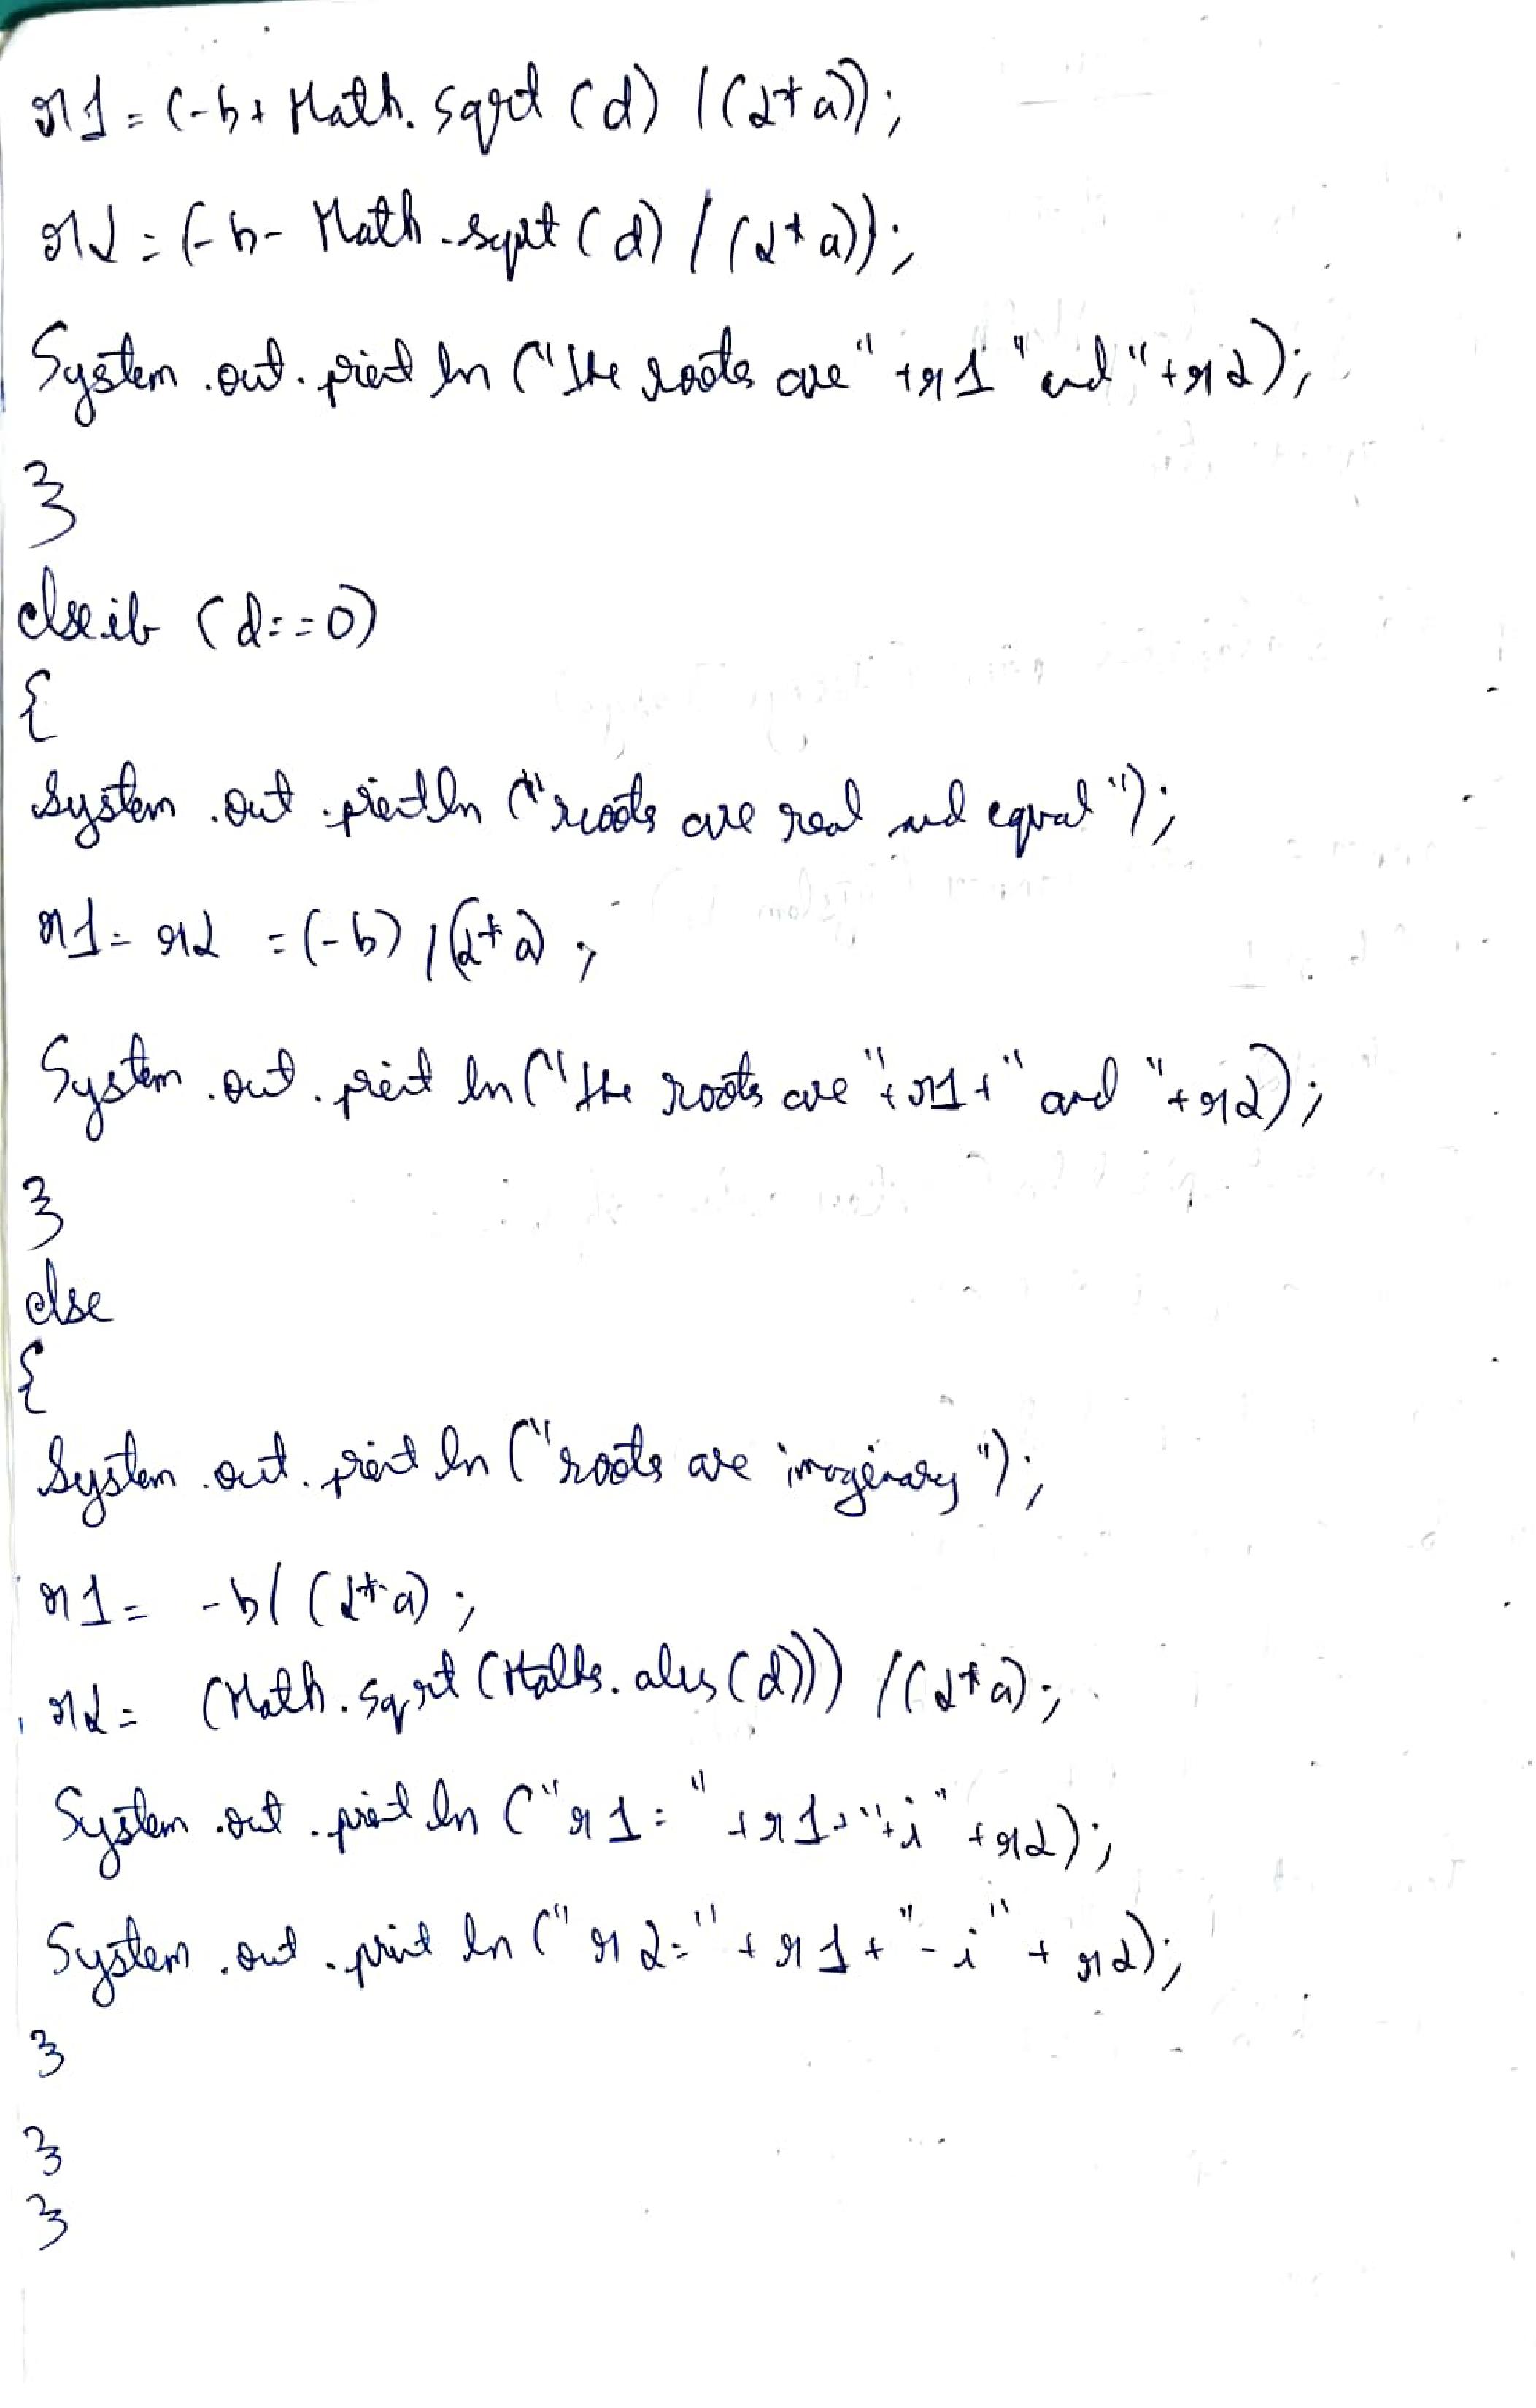 r1=(-b+Math.sqrt(d) /(2*a));
r2=(-b-Math.sqrt(d) /(2*a));
System.out.println("The roots are"+r1"and"+r2);
}
else if (d==0)
{
System.out.println("roots are real and equal");
r1=r2=(-b)/(2*a);
System.out.println("The roots are"+r1+"and"+r2);
}
else
{
System.out.println("roots are imaginary");
r1= -b/(2*a);
r2= (Math.sqrt(Math.abs(d)))/(2*a);
System.out.println("r1="+r1+"+i"+r2);
System.out.println("r2="+r1+"-i"+r2);
}
}
}